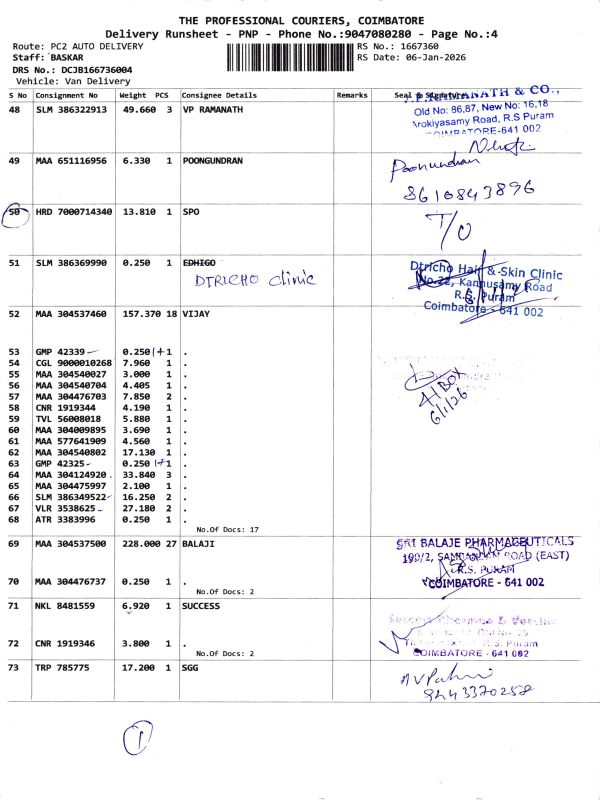 THE PROFESSIONAL COURIERS, COIMBATORE
Delivery Runsheet - PNP - Phone No.:9047080280 - Page No.:4
Route: PC2 AUTO DELIVERY
RS No.: 1667360
Staff: BASKAR
RS Date: 06-Jan-2026
DRS No.: DCJB166736004
Vehicle: Van Delivery
S No Consignment No Weight PCS Consignee Details Remarks Seal & Signature
48 SLM 386322913 49.660 3 VP RAMANATH
RAMANATH & CO.,
Old No: 86,87, New No: 16,18
Arokiyasamy Road, R.S Puram
COIMBATORE-641 002
49 MAA 651116956 6.330 1 POONGUNDRAN
Poongundran
8610843896
50 HRD 7000714340 13.810 1 SPO
T/O
51 SLM 386369990 0.250 1 EDHIGO
DTRICHO clinic
Dtricho Hair & Skin Clinic
No.22, Kannusamy Road
R.S. Puram
Coimbatore - 641 002
52 MAA 304537460 157.370 18 VIJAY
53 GMP 42339 0.250 1 .
54 CGL 9000010268 7.960 1 .
55 MAA 304540027 3.000 1 .
56 MAA 304540704 4.405 1 .
57 MAA 304476703 7.850 2 .
58 CNR 1919344 4.190 1 .
59 TVL 56008018 5.880 1 .
60 MAA 304009895 3.690 1 .
61 MAA 577641909 4.560 1 .
62 MAA 304540802 17.130 1 .
63 GMP 42325 0.250 1 .
64 MAA 304124920 33.840 3 .
65 MAA 304475997 2.100 1 .
66 SLM 386349522 16.250 2 .
67 VLR 3538625 27.180 2 .
68 ATR 3383996 0.250 1 .
No.Of Docs: 17
BOX
6/1/26
69 MAA 304537500 228.000 27 BALAJI
SRI BALAJE PHARMACEUTICALS
199/2, SAMBANDAM ROAD (EAST)
R.S. PURAM
COIMBATORE - 641 002
70 MAA 304476737 0.250 1 .
No.Of Docs: 2
71 NKL 8481559 6.920 1 SUCCESS
72 CNR 1919346 3.800 1 .
No.Of Docs: 2
R.S. Puram
COIMBATORE - 641 002
73 TRP 785775 17.200 1 SGG
9443370258
1